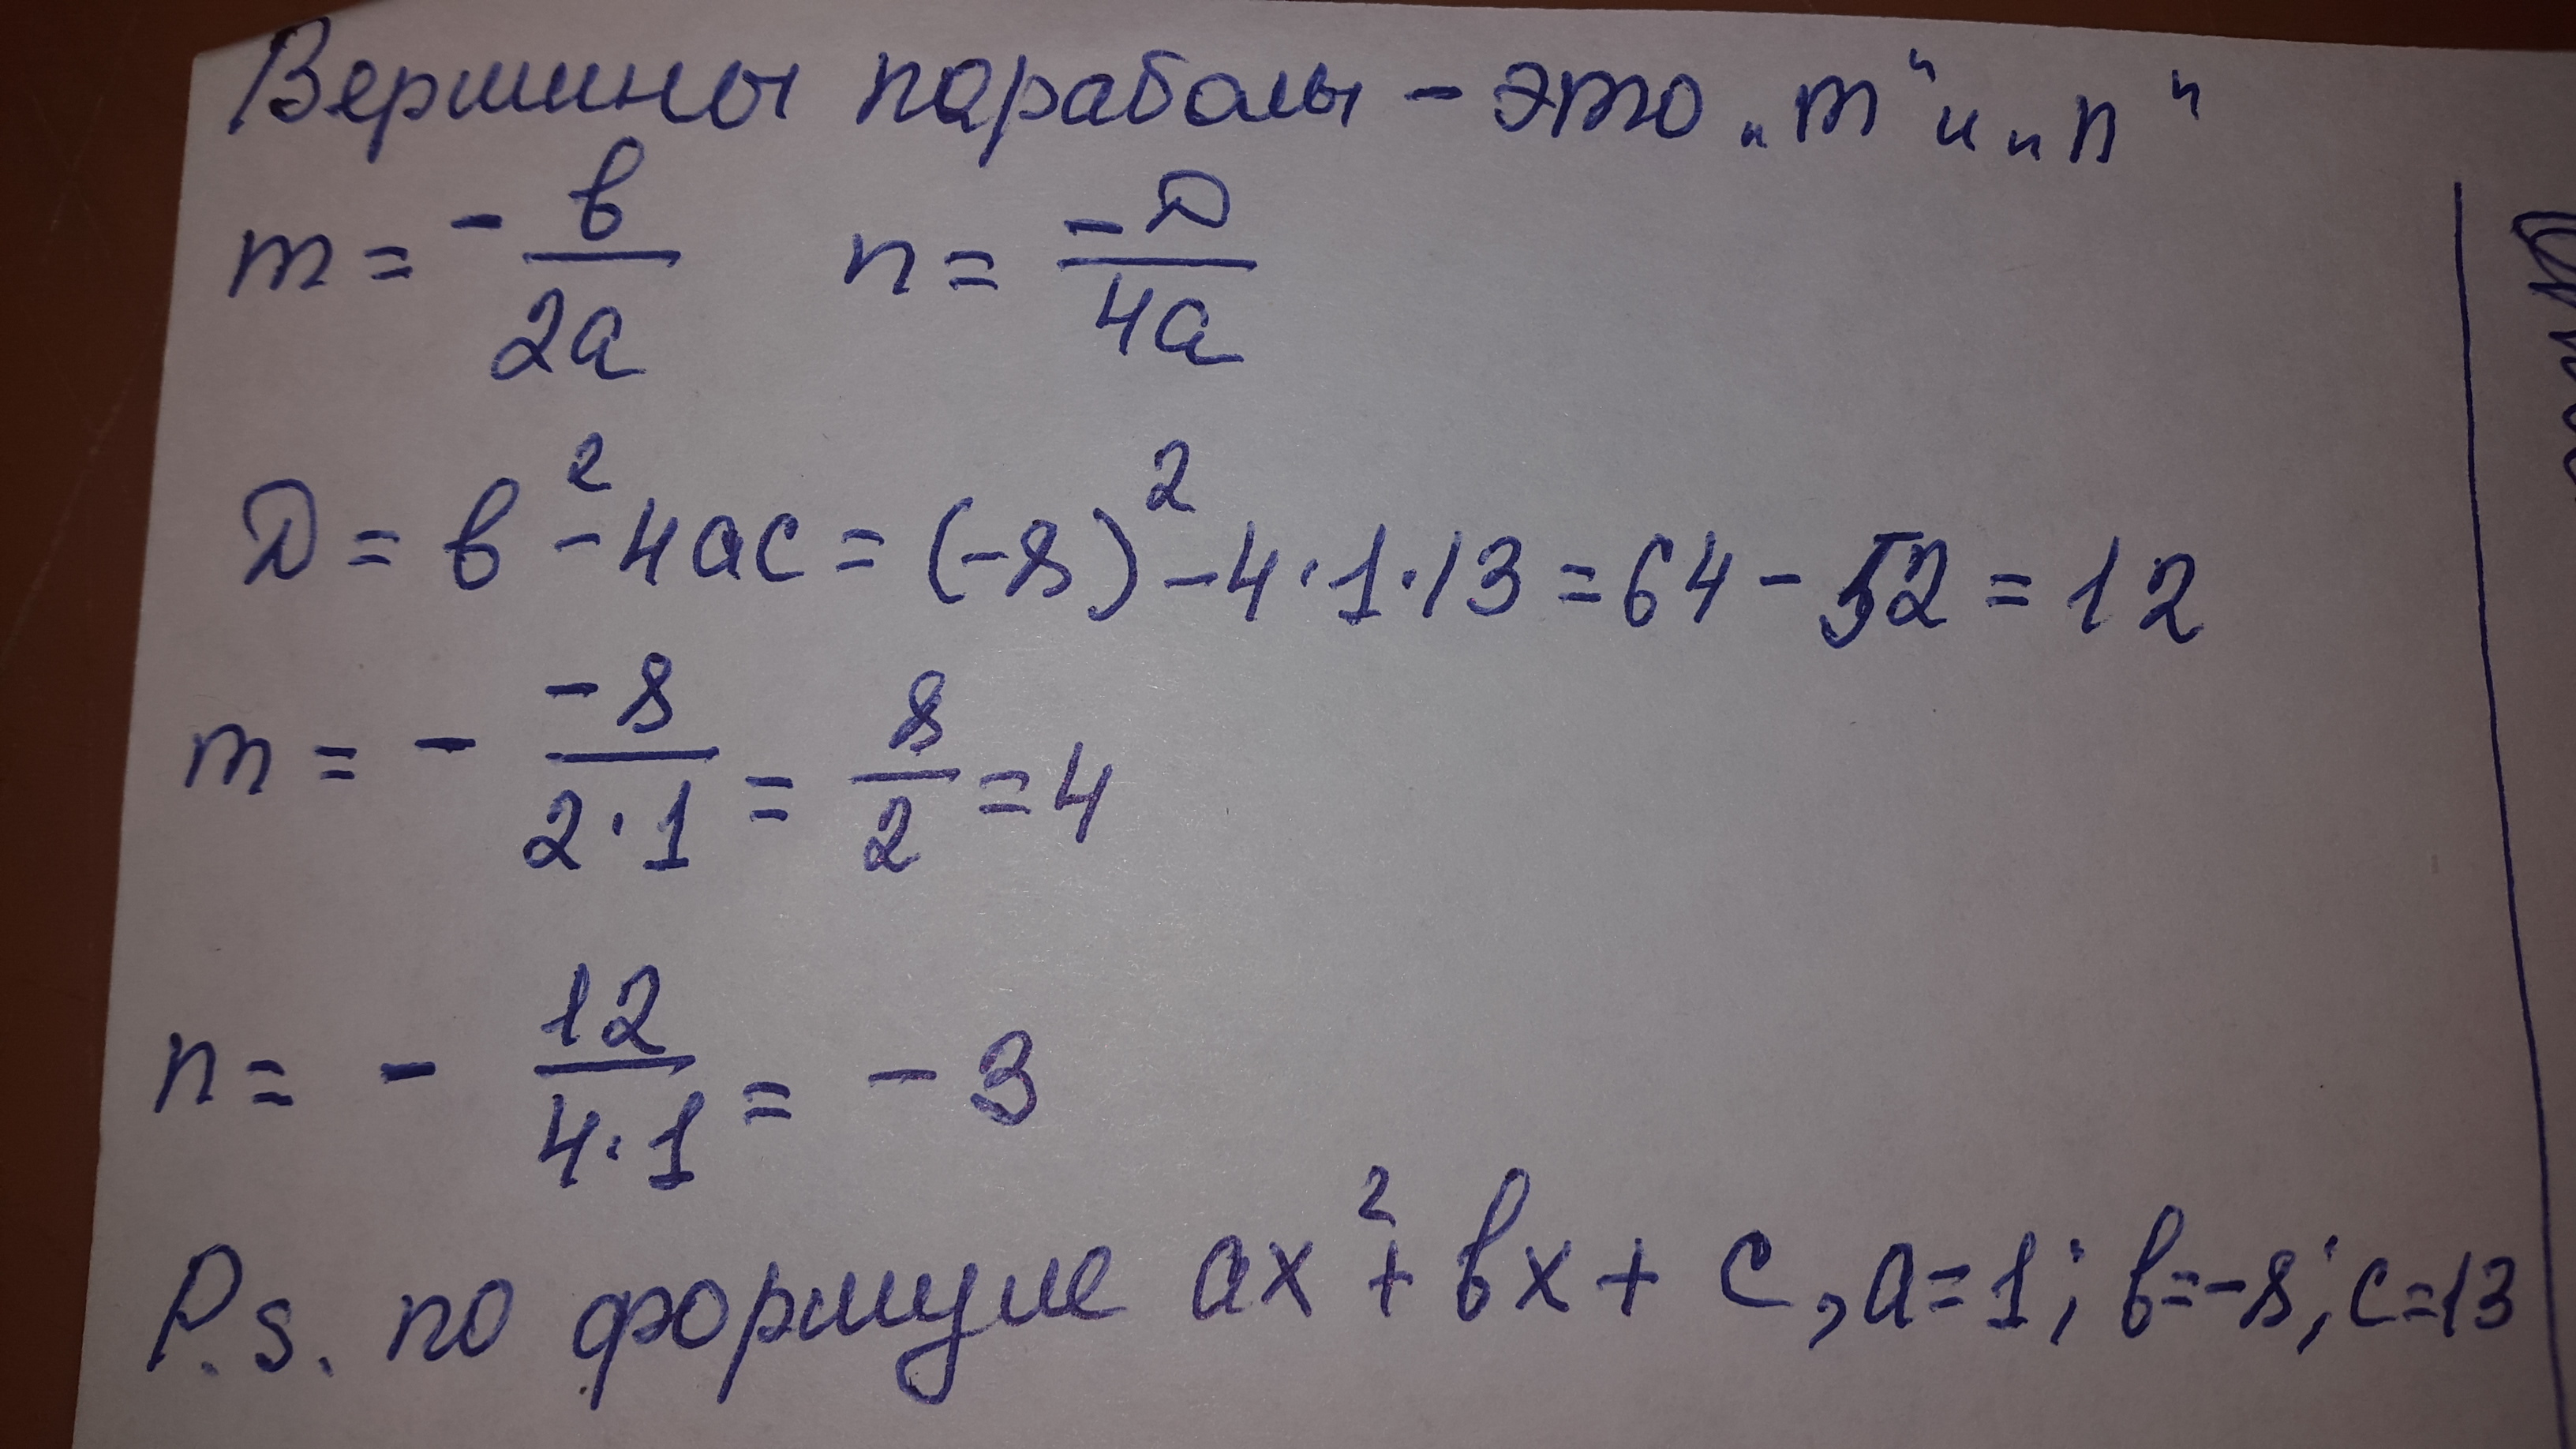 Вершины параболы - это „m" и „n"
m = - b/2a n = -D/4a
D = b² - 4ac = (-8)² - 4·1·13 = 64 - 52 = 12
m = - -8/2·1 = 8/2 = 4
n = - 12/4·1 = - 3
P.s. по формуле ax² + bx + c, a=1; b=-8; c=13